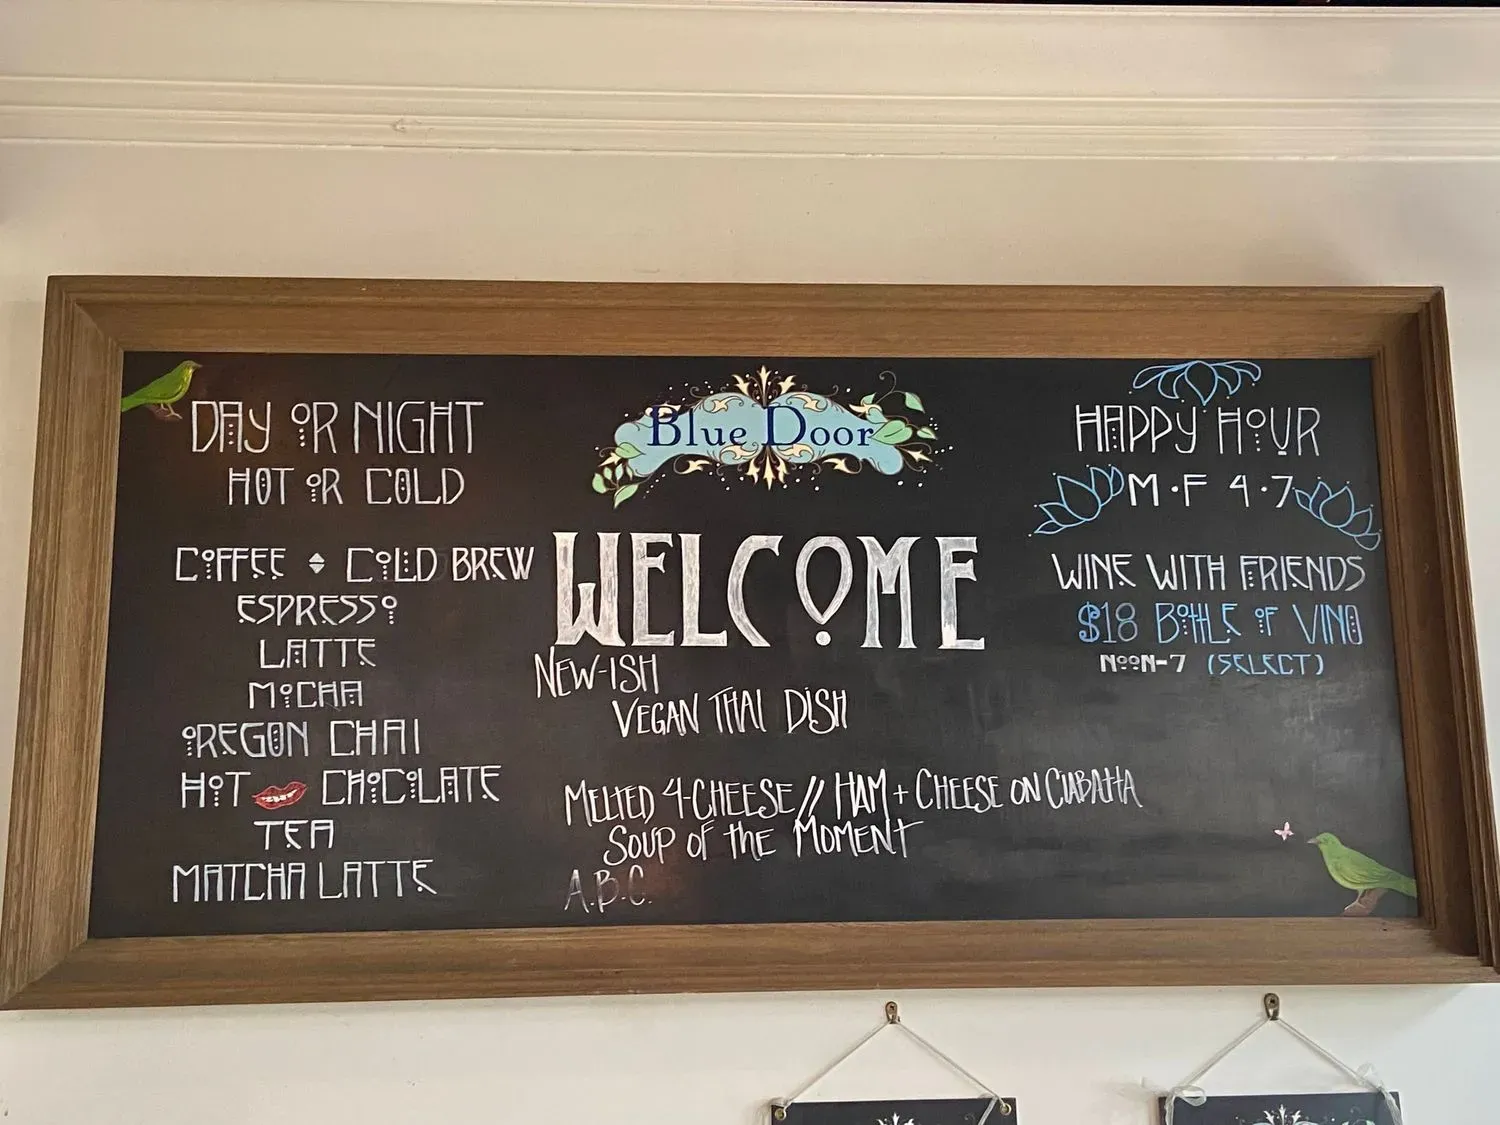 DAY OR NIGHT
HOT OR COLD
COFFEE COLD BREW
ESPRESSO
LATTE
MOCHA
OREGON CHAI
HOT CHOCOLATE
TEA
MATCHA LATTE
Blue Door
WELCOME
NEW-ISH
VEGAN THAI DISH
MELTED 4-CHEESE // HAM + CHEESE ON CIABATTA
SOUP OF THE MOMENT
A.B.C.
HAPPY HOUR
M·F 4·7
WINE WITH FRIENDS
$18 BOTTLE OF VINO
NOON-7 (SELECT)